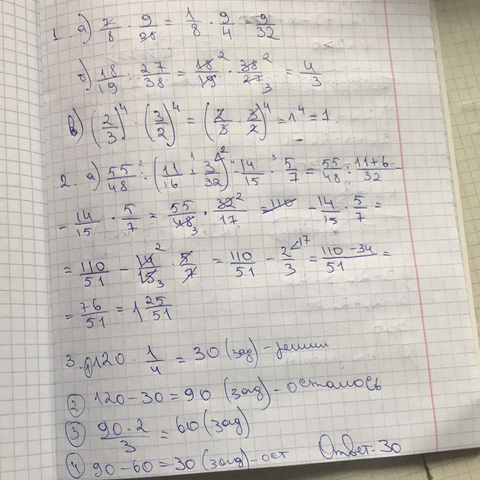 1. а) 7/8 · 9/28 = 1/8 · 9/4 = 9/32
б) 18/19 : 27/38 = 18/19 · 38/27 = 4/3
в) (2/3)^4 · (3/2)^4 = (2/3 · 3/2)^4 = 1^4 = 1.
2. а) 55/48 : (11/16 + 3/32) - 14/15 · 5/7 = 55/48 : 11+6/32
- 14/15 · 5/7 = 55/48 · 32/17 = 110 - 14/15 · 5/7 =
= 110/51 - 14/15 · 5/7 = 110/51 - 2/3 = 110-34/51 =
= 76/51 = 1 25/51
3. 1) 120 · 1/4 = 30 (зад) - решили
2) 120 - 30 = 90 (зад) - осталось
3) 90 · 2/3 = 60 (зад)
4) 90 - 60 = 30 (зад) - ост Ответ: 30